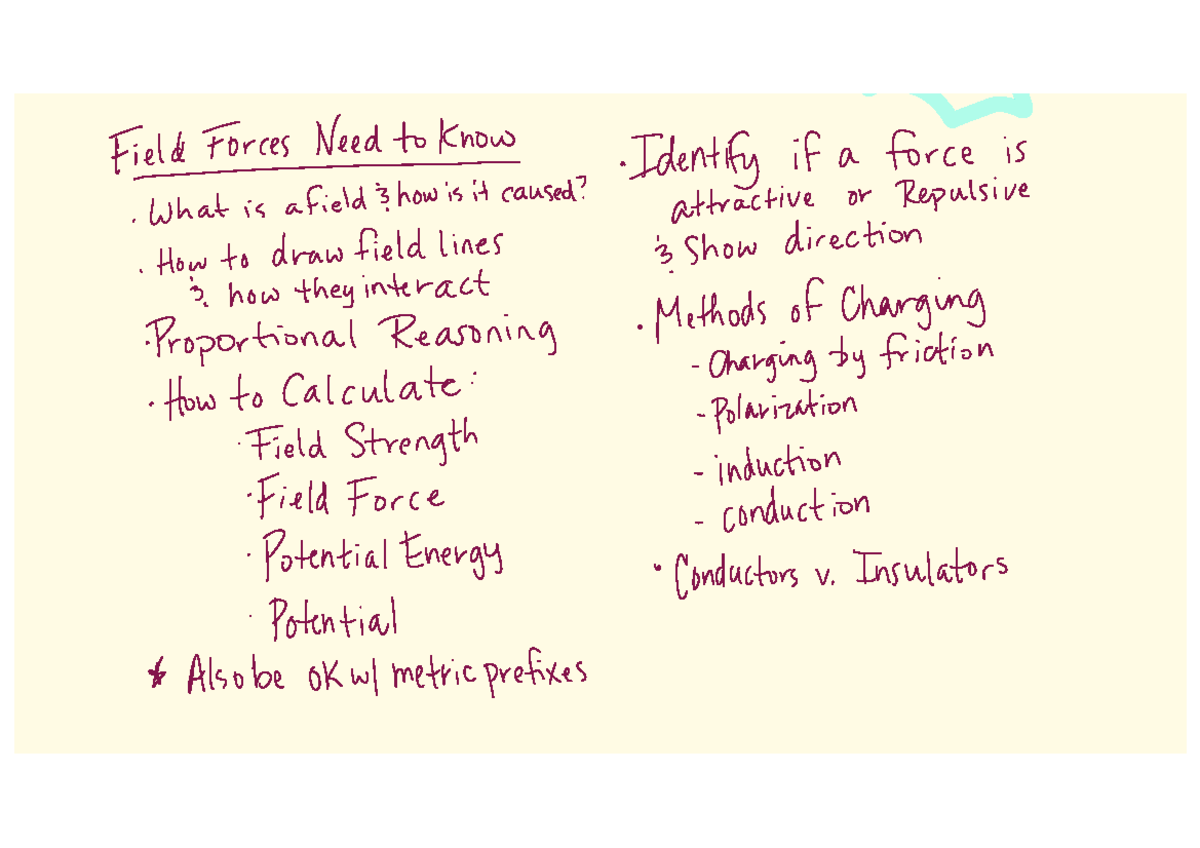 Field Forces Need to Know
· What is a field & how is it caused?
· How to draw field lines
& how they interact
· Proportional Reasoning
· How to Calculate:
· Field Strength
· Field Force
· Potential Energy
· Potential
* Also be OK w/ metric prefixes
· Identify if a force is
attractive or Repulsive
& Show direction
· Methods of Charging
- Charging by friction
- Polarization
- induction
- conduction
· Conductors v. Insulators